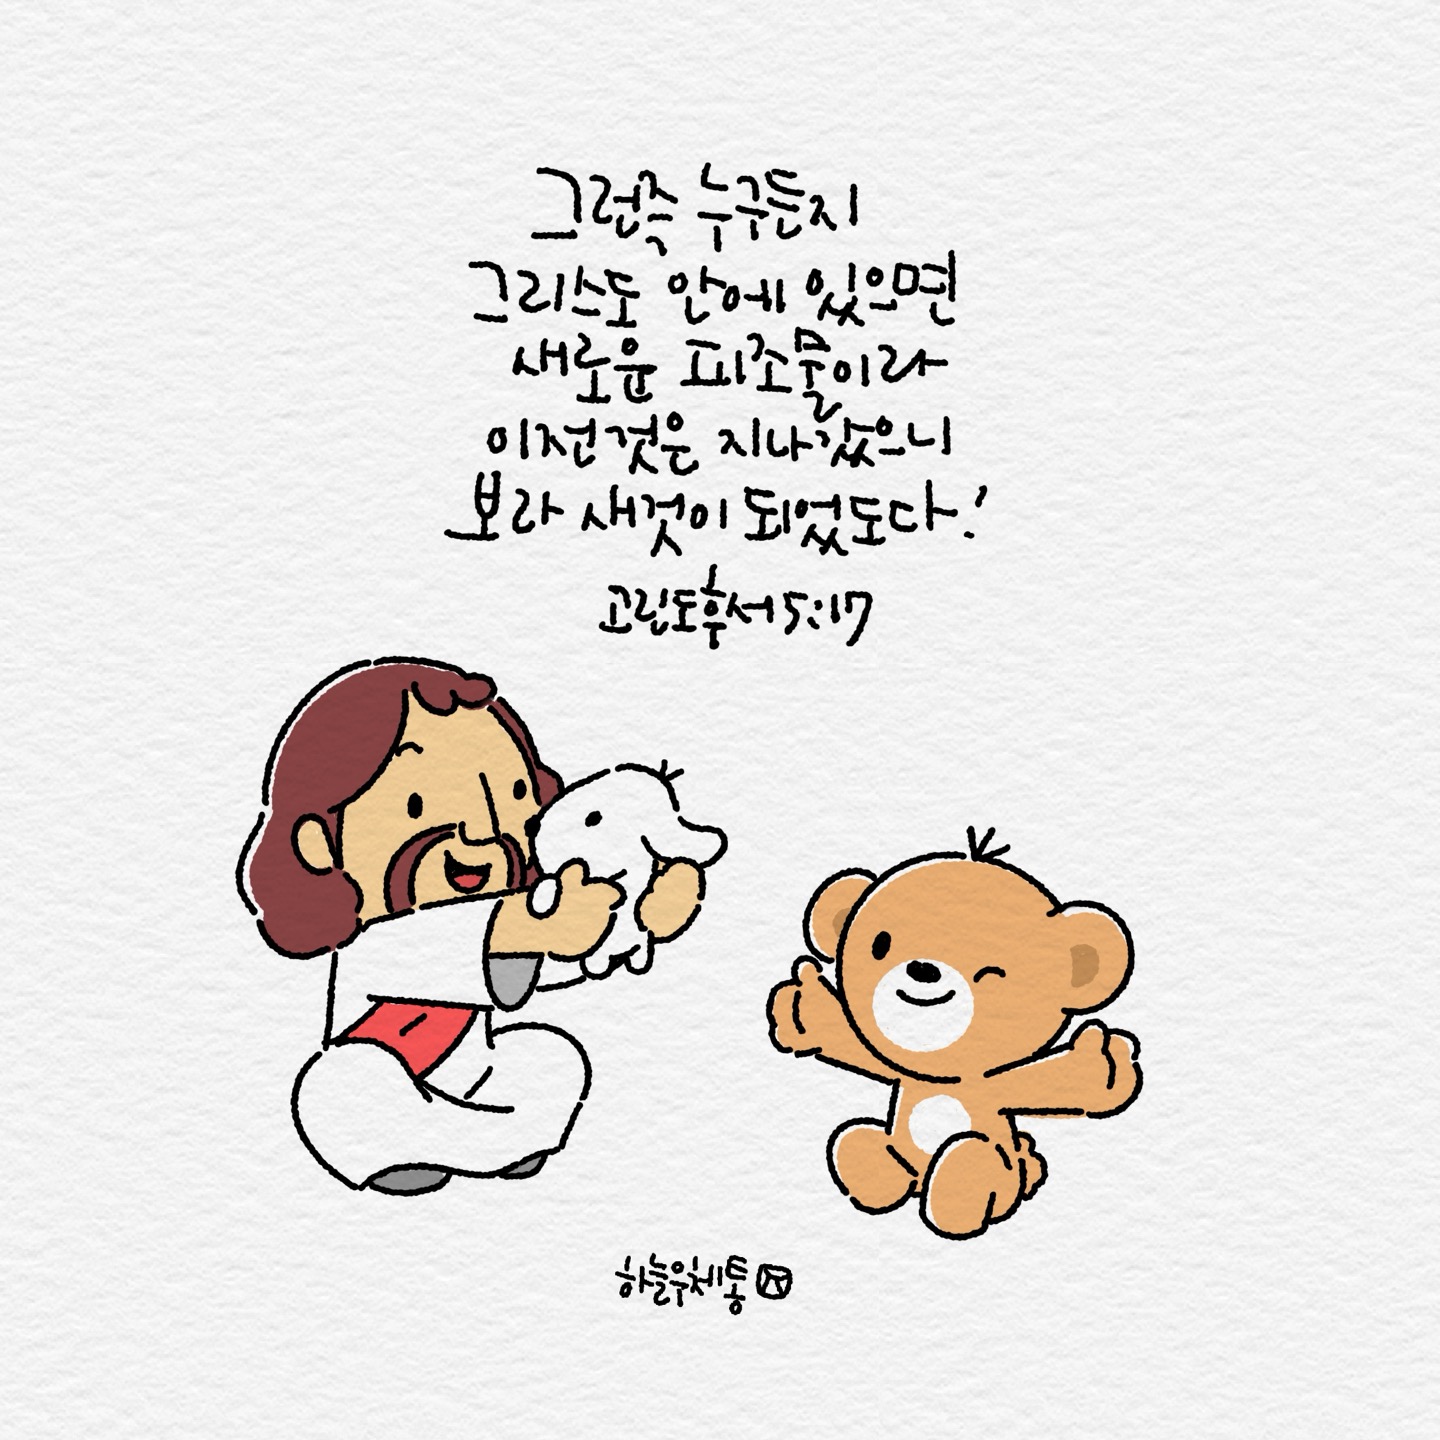 그런즉 누구든지
그리스도 안에 있으면
새로운 피조물이라
이전 것은 지나갔으니
보라 새것이 되었도다!
고린도후서 5:17
하늘우체통